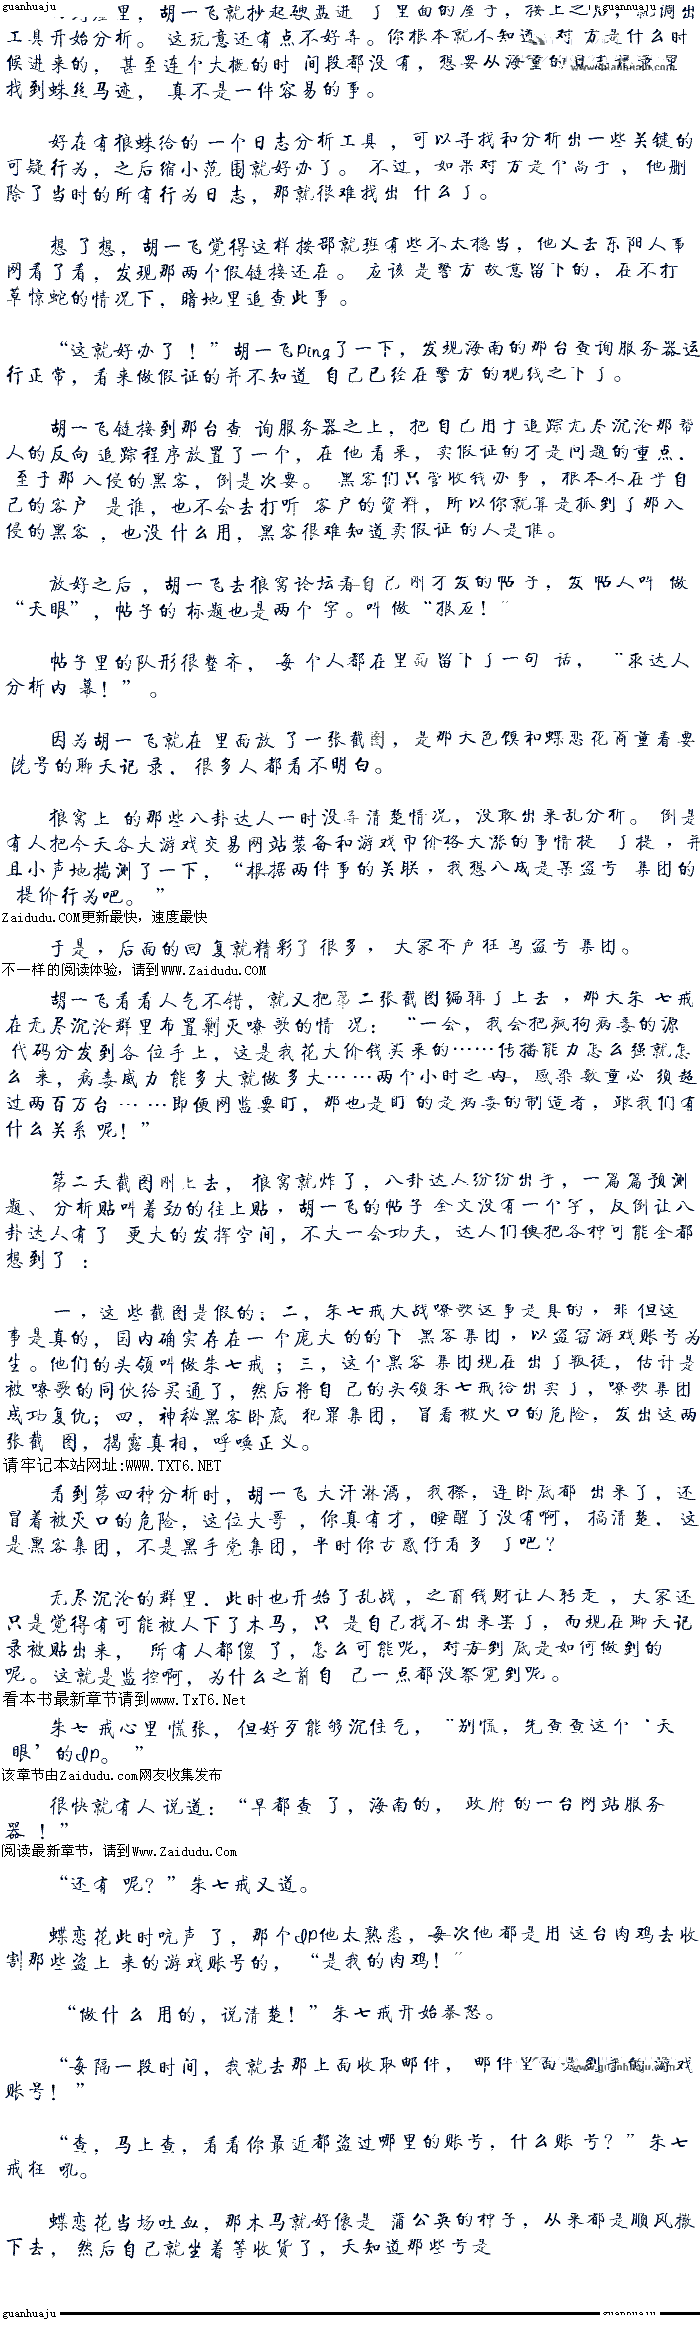 guanhuaju guanhuaju
里，胡一飞就抄起硬盘进 了里面的屋子，接上之后，就调出
工具开始分析。 这玩意还有点不好弄。你根本就不知道 对 方是什么时
候进来的， 甚至连个大概的时 间段都没有，想要从海量的日志记录里
www.guanhuaju.com
找到蛛丝马迹， 真不是一件容易的事。
好在有狼蛛给的 一个日志分析工具 ，可以寻找和分析出一些关键的
可疑行为，之后缩小范 围就好办了。 不过，如果对 方是个高手 ，他删
除了当时的所有行为日志，那就很难找出 什么了。
想 了想，胡一飞觉得这样按部就班有些不太稳当，他又去东阳人事
网看了看，发现那两个假链接还在。 应该 是警方 故意留下的，在不打
草惊蛇的情况下，暗地里追查此事 。
“这就好办了 ！”胡一飞Ping了一下，发现海南的那台查询服务器运
行正常，看来做假证的并不知道 自己已经在警方 的视线之下了。
胡一飞链接到那台查 询服务器之上，把 自己用于追踪无尽沉沦那帮
人的反向 追踪程序放置了一个，在 他 看来，卖假证的才是问题的重点．
至于那 入侵的黑客，倒是次要。 黑客们只管收钱办事 ，根本不在乎自
己的客户 是谁，也不会去打听 客户的资料，所以你就算是抓到了那入
侵的黑客 ，也没 什么用，黑客很难知道卖假证 的人是谁。
放好之后 ，胡一飞去狼窝论坛看自己 刚才发的帖 子，发 帖人叫 做
“天眼”，帖子的 标题也是两个 字。叫 做“报应！”
帖子里的队形很整齐， 每 个人都在里面留下了一句 话， “求达人
分析内 幕！” 。
因为胡一 飞就在 里面放 了一张截图，是那大色馍和蝶恋花商量着要
洗号的聊天记 录．很多人都看不明白。
狼窝上 的那些八卦达人一时没弄清楚情况，没敢出来乱分析。 倒是
有人把今天各大游戏交易网站装备和游戏币价格大涨的事情提 了提 ，并
且小声地揣测了一下，“根据两件事的关联，我想八成是某盗号 集团的
提价行为吧。”
Zaidudu.COM更新最快，速度最快
于是，后面的回 复就精彩了很多 ，大家齐声狂 骂盗号 集团。
不一样的阅读体验，请到WWW.Zaidudu.COM
胡一飞看看人气不错，就又把第二张截图编辑了上去 ，那天朱 七戒
在无尽沉沦群里布置剿灭嘹 歌的情 况： “一会，我会把疯狗病毒的源
代码分发到各 位手上，这是我花大价钱买来的……传播能力怎么强就怎
么 来，病毒威力 能多大就做多大… …两个小时之 内，感染 数量必 须超
过两百万台… …即便网监要盯，那也是盯 的是病毒的制造者，跟我们有
什么关系 呢！”
第二天截图刚上去， 狼窝就炸了，八卦达人纷纷出手，一篇篇预测
题、 分析贴叫着劲的往上贴 ，胡一飞的帖子 全文没有一个字，反倒让八
卦达人有了 更大的发挥空间，不大一会功夫，达人们便把各种可能全都
想到了 ：
一，这 些截图是假的；二，朱七戒大战嘹歌这事是真的，非 但这
事是真的，国内确实存在一 个庞大 的的下 黑客集团，以盗窃游戏账号为
生。他们的头领叫做朱七戒 ；三，这个黑客 集团现在 出了叛徒，估计是
被 嘹歌的同伙给买通了，然后将自 己的头领朱七戒给出卖了，嘹歌集团
成功复仇；四，神秘黑客卧底 犯罪集团， 冒着被灭口的危险，发出这两
张截 图，揭露真相，呼唤正义。
请牢记本站网址:WWW.TXT6.NET
看到第四种分析时，胡一飞 大汗淋漓，我擦，连卧底都 出来了，还
冒着被灭口的危险，这位大哥 ，你真有才，睡醒了没有啊， 搞清楚．这
是黑客集团，不是黑手党集团，平时你古惑仔看多 了吧？
无尽沉沦的群里．此时也开始了乱战 ，之前钱财让人转走 ，大家还
只是觉得有可能被人下了木马，只 是自己找不出来罢了，而现在聊天记
录被贴出来， 所有人都傻 了，怎么可能呢，对方到 底是如何做到的
呢。这就是监控啊，为什么之前自 己一点都没察觉到呢。
看本书最新章节请到www.TxT6.Net
朱七 戒心里 慌张，但好歹能够沉住气，“别慌，先查查这个‘天
眼’的IP。 ”
该章节由Zaidudu.com网友收集发布
很快就有人 说道：“早都查 了，海南的， 政府 的一台网站服务
器 ！”
阅读最新章节，请到Www.Zaidudu.Com
“还有 呢？”朱七戒又道。
蝶恋花此时吭声 了，那个IP他太熟悉，每次他 都是用 这台肉鸡去收
割那些盗上 来的游戏账号的，“是我的肉鸡！”
“做什 么 用的，说清楚！”朱七戒开始暴怒。
“每隔一段时间，我就去那上面收取邮件， 邮件里面是到手的 游戏
www.guanhuaju.com
账号！”
“查，马上查，看看你最近都盗过哪里的账号，什么账 号？”朱七
戒狂 吼。
蝶恋花当场吐血，那木马就好像是 蒲公英的种子，从来都是顺风撒
下去，然后自己就坐着等收货了，天知道那些号是
guanhuaju guanhuaju